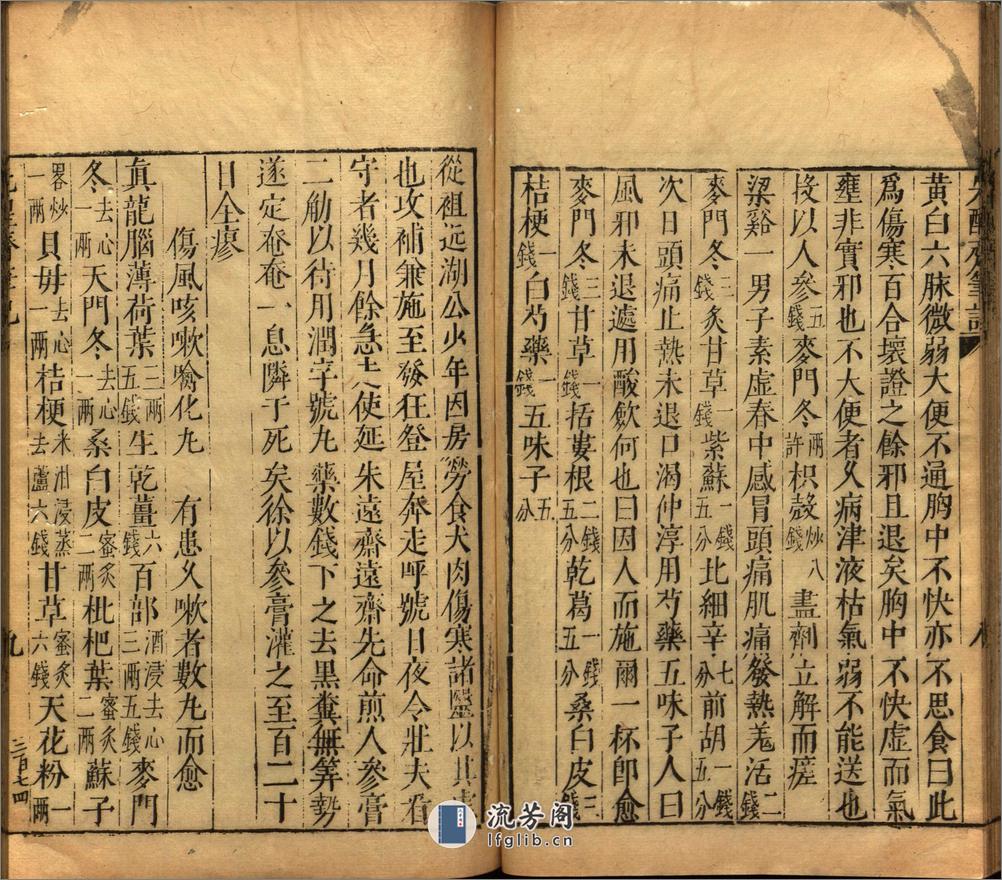 黄白六脉微弱大便不通胸中不快亦不思食曰此
爲傷寒百合壞證之餘邪且退矣胸中不快虚而氣
壅非實邪也不大便者久病津液枯氣弱不能送也
投以人參五錢麥門冬兩許枳殼炒八錢盡劑立解而瘥
梁谿一男子素虚春中感冒頭痛肌痛發熱羌活二錢
麥門冬三錢炙甘草一錢紫蘇一錢五分北細辛七分前胡一錢五分
次日頭痛止熱未退口渴仲淳用芍藥五味子人曰
風邪未退遽用酸歛何也曰因人而施爾一杯卽愈
麥門冬三錢甘草一錢括蔞根二錢五分乾葛一錢五分桑白皮三錢
桔梗一錢白芍藥一錢五味子五分
從祖远湖公少年因房勞食犬肉傷寒諸醫以其虚
也攻補兼施至發狂登屋奔走呼號日夜令壯夫看
守者幾月餘急走使延朱遠齋遠齋先命煎人參膏
二觔以待用潤字號丸藥數錢下之去黒糞無筭勢
遂定奄奄一息隣于死矣徐以參膏灌之至百二十
日全瘳
傷風咳嗽噙化丸 有患久嗽者數丸而愈
真龍腦薄荷葉三兩五錢生乾薑六錢百部酒浸去心三兩五錢麥門
冬去心一兩天門冬去心一兩桑白皮蜜炙二兩枇杷葉蜜炙二兩蘇子
畧炒一兩貝母去心一兩桔梗米泔浸蒸去蘆六錢甘草蜜炙六錢天花粉一兩
九
三百七四
流芳阁
lfglib.cn